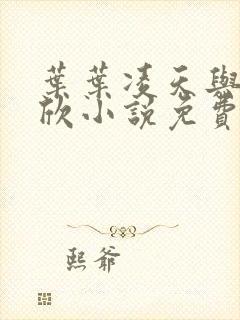 葉葉凌天與
欣小說免費
熙爺